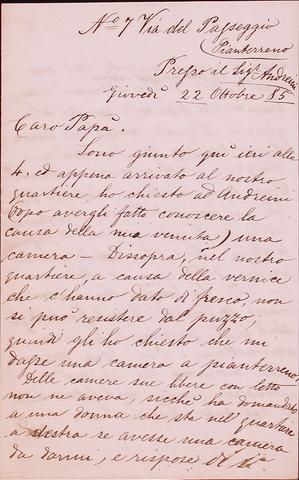 No 7 Via del Passeggio
Pianterreno
Presso il Sigr Andreini
Giovedì 22 Ottobre 85
Caro Papà.
Sono giunto quì ieri alle
4, ed appena arrivato al nostro
quartiere, ho chiesto ad Andreini
(dopo avergli fatto conoscere la
causa della mia venuta) una
camera – Dissopra, nel nostro
quartiere, a causa della vernice
che c'hanno dato di fresco, non
si può resistere dal puzzo;
quindi gli ho chiesto che mi
dasse una camera a pianterreno.
Delle camere sue libere con letto
non ne aveva, sicchè ha domandato
a una donna che sta nel quartiere
a destra se avesse una camera
da darmi, e rispose di sì.